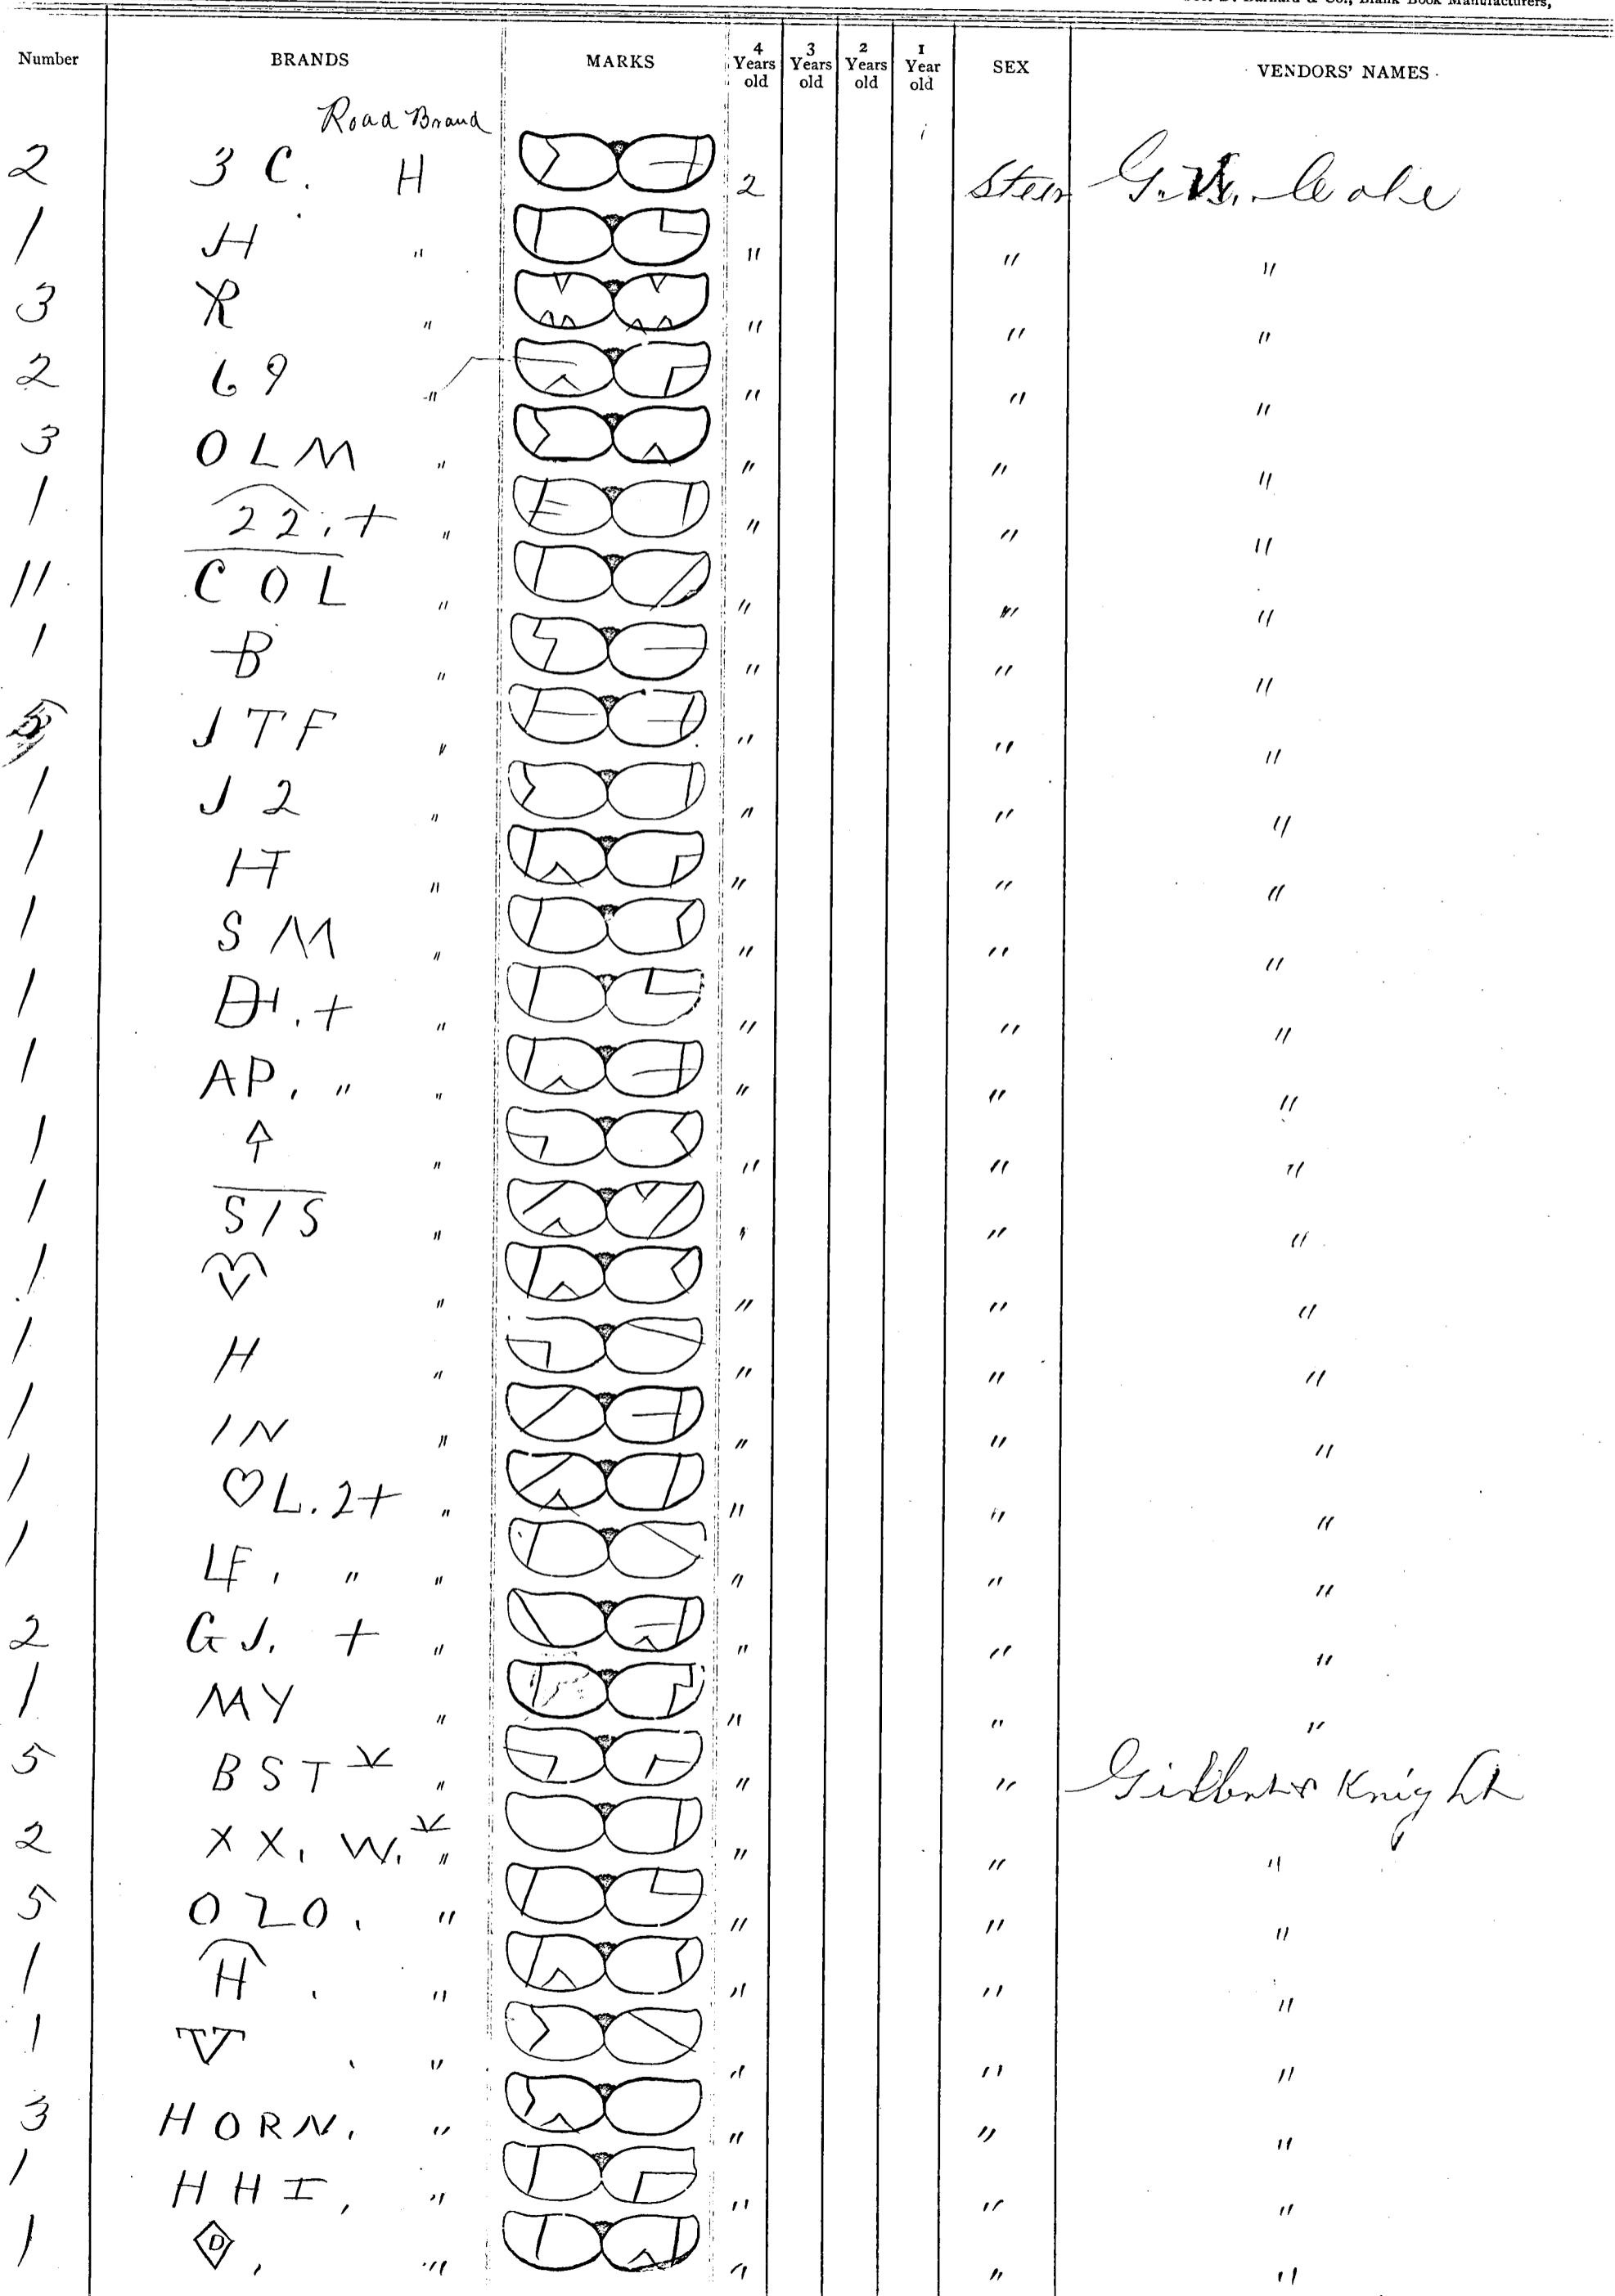 Number BRANDS MARKS 4 Years old 3 Years old 2 Years old 1 Year old SEX VENDORS' NAMES
Road Brand
2 3 C. H 2 Steer G. W. Cole
1 H " " " "
3 R " " " "
2 69 " " " "
3 OLM " " " "
1 22.+ " " " "
11 COL " " " "
1 B " " " "
JTF " " " "
1 J2 " " " "
1 HT " " " "
1 SM " " " "
1 .+ " " " "
1 AP. " " " " "
1 ↑ " " " "
1 S/S " " " "
1 " " " "
1 H " " " "
1 IN " " " "
1 ♡L.2+ " " " "
1 LF. " " " " "
2 GJ. + " " " "
1 MY " " " "
5 BST " " " Gilbert & Knight
2 XX. W. " " " "
5 OZO. " " " "
1 H. " " " "
1 " " " "
3 HORN. " " " "
1 HHI, " " " "
1 D, " " " "